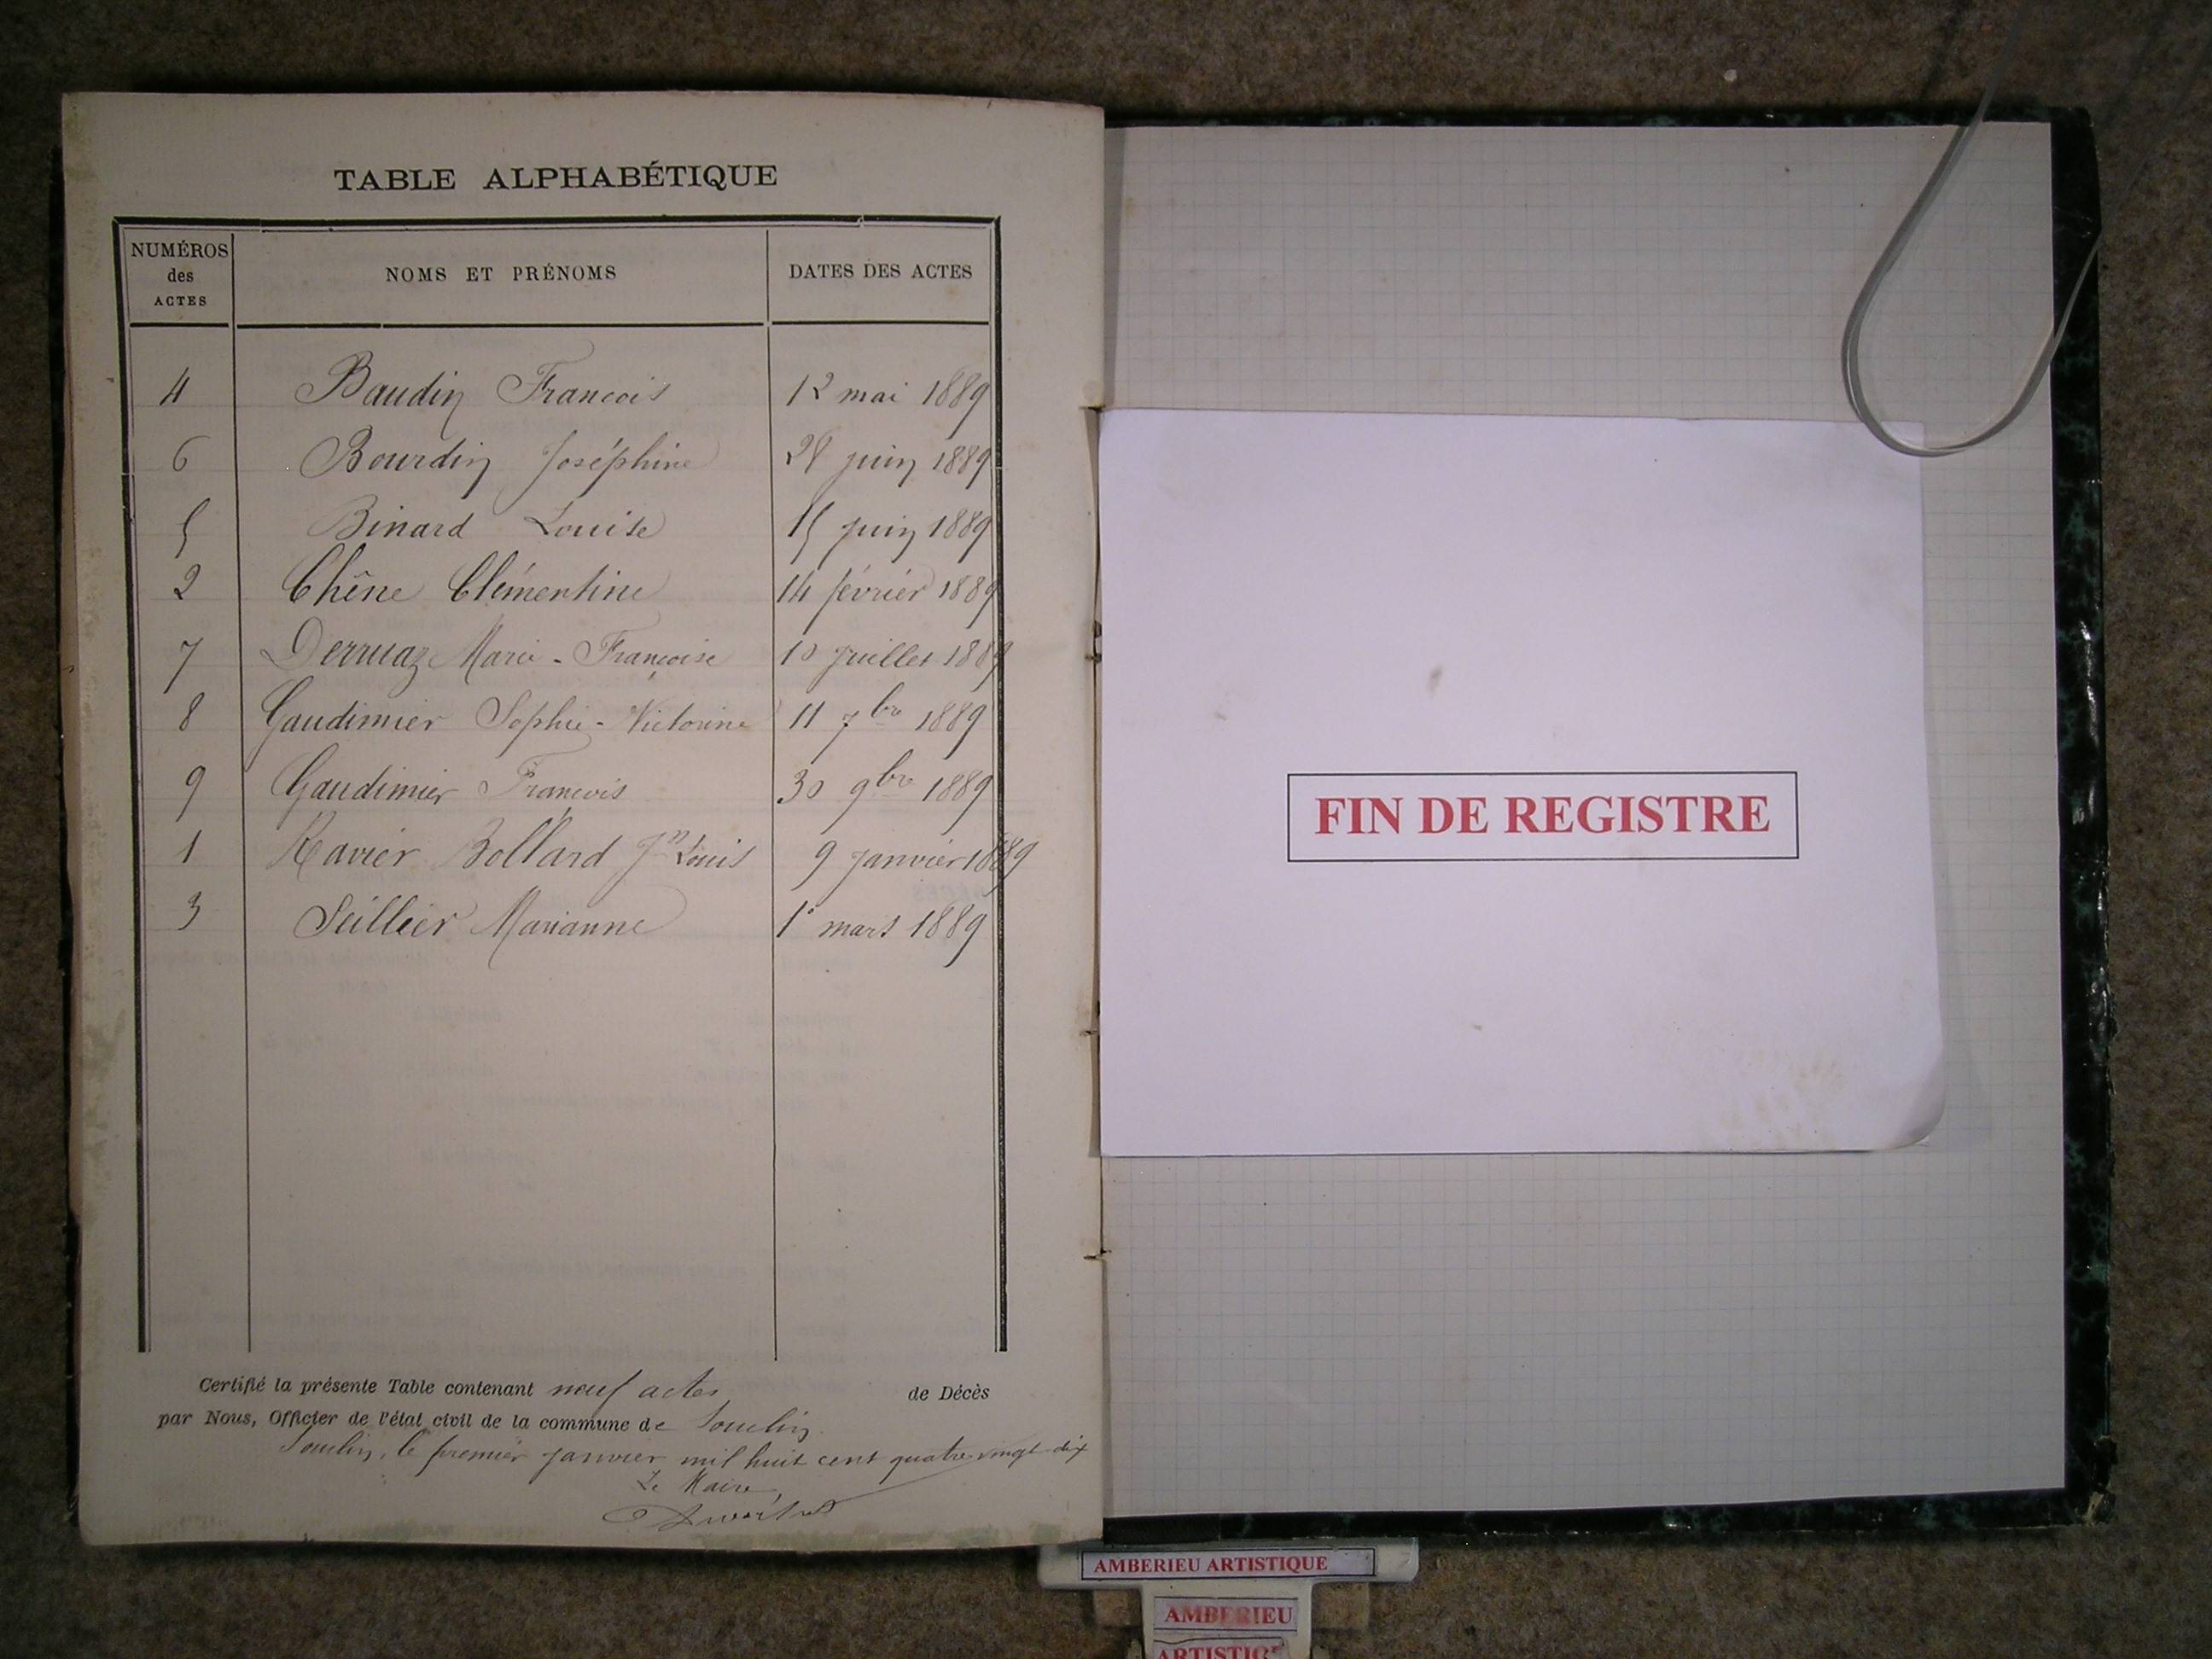 TABLE ALPHABÉTIQUE
NUMÉROS des ACTES NOMS ET PRÉNOMS DATES DES ACTES
4 Baudin Francois 12 mai 1889
6 Bourdin Joséphine 28 juin 1889
5 Binard Louise 15 juin 1889
2 Chêne Clémentine 14 février 1889
7 Derruaz Marie-Françoise 10 juillet 1889
8 Gaudimier Sophie-Victorine 11 7bre 1889
9 Gaudimier François 30 9bre 1889
1 Ravier Bollard Jn Louis 9 janvier 1889
3 Seillier Marianne 1° mars 1889
Certifié la présente Table contenant neuf actes de Décès
par Nous, Officier de l'état civil de la commune de Souclin
Souclin, le premier janvier mil huit cent quatre vingt dix
Le Maire,
FIN DE REGISTRE
AMBERIEU ARTISTIQUE
AMBERIEU